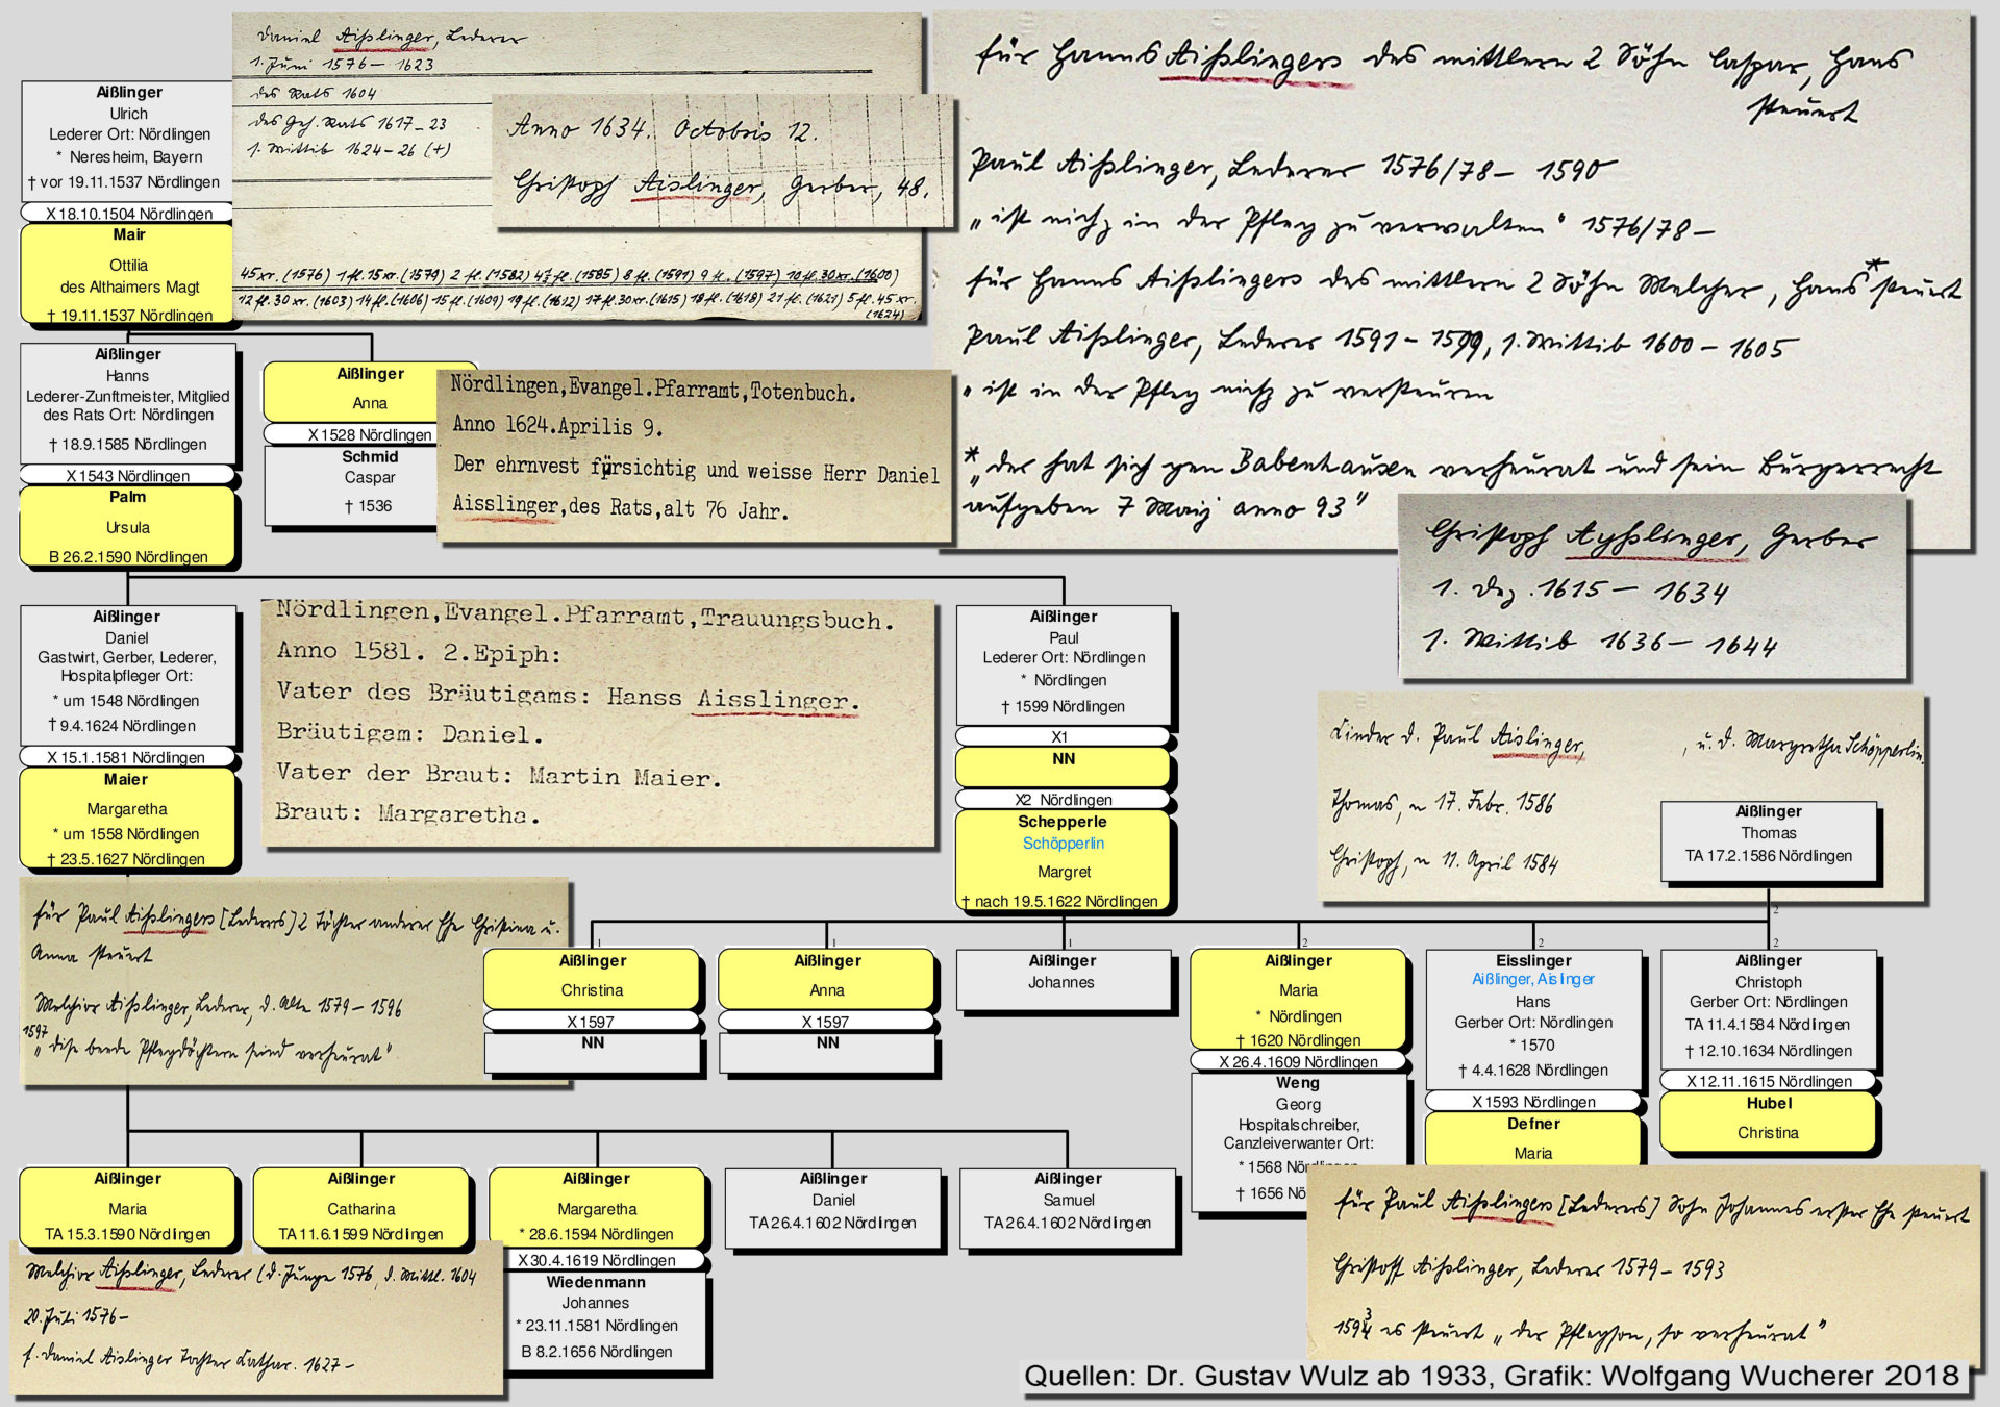 Daniel Aißlinger, Lederer
1. Juni 1576 – 1623
des Rats 1604
des Geh. Rats 1617–23
1. Wittib 1624–26 (+)
45 xr. (1576) 1 fl. 15 xr. (1579) 2 fl. (1582) 4½ fl. (1585) 8 fl. (1591) 9 fl. (1597) 10 fl. 30 xr. (1600)
12 fl. 30 xr. (1603) 14 fl. (1606) 15 fl. (1609) 19 fl. (1612) 17 fl. 30 xr. (1615) 18 fl. (1618) 21 fl. (1621) 5 fl. 45 xr.
(1624)
Anno 1634. Octobris 12.
Christoph Aislinger, Gerber, 48.
für Hanns Aißlingers des mittlern 2 Söhn Caspar, Hans
steuert
Paul Aißlinger, Lederer 1576/78 – 1590
„ist nicht in der Pfleg zu verwalten" 1576/78 –
für Hanns Aißlingers des mittlern 2 Söhn Melcher, Hans* steuert
Paul Aißlinger, Lederer 1591 – 1599, 1. Wittib 1600 – 1605
„ist in der Pfleg nicht zu versteuren
* „der hat sich gen Babenhausen verheurat und sein Bürgerrecht
aufgeben 7 Maij anno 93"
Aißlinger
Ulrich
Lederer Ort: Nördlingen
* Neresheim, Bayern
† vor 19.11.1537 Nördlingen
X 18.10.1504 Nördlingen
Mair
Ottilia
des Althaimers Magt
† 19.11.1537 Nördlingen
Aißlinger
Hanns
Lederer-Zunftmeister, Mitglied
des Rats Ort: Nördlingen
† 18.9.1585 Nördlingen
X 1543 Nördlingen
Palm
Ursula
B 26.2.1590 Nördlingen
Aißlinger
Anna
X 1528 Nördlingen
Schmid
Caspar
† 1536
Nördlingen,Evangel.Pfarramt,Totenbuch.
Anno 1624.Aprilis 9.
Der ehrnvest fürsichtig und weisse Herr Daniel
Aisslinger,des Rats,alt 76 Jahr.
Christoph Ayßlinger, Gerber
1. Dez. 1615 – 1634
1. Wittib 1636 – 1644
Aißlinger
Daniel
Gastwirt, Gerber, Lederer,
Hospitalpfleger Ort:
* um 1548 Nördlingen
† 9.4.1624 Nördlingen
X 15.1.1581 Nördlingen
Maier
Margaretha
* um 1558 Nördlingen
† 23.5.1627 Nördlingen
Nördlingen,Evangel.Pfarramt,Trauungsbuch.
Anno 1581. 2.Epiph:
Vater des Bräutigams: Hanss Aisslinger.
Bräutigam: Daniel.
Vater der Braut: Martin Maier.
Braut: Margaretha.
Aißlinger
Paul
Lederer Ort: Nördlingen
* Nördlingen
† 1599 Nördlingen
X1
NN
X2 Nördlingen
Schepperle
Schöpperlin
Margret
† nach 19.5.1622 Nördlingen
Kinder d. Paul Aislinger, , u. d. Margretha Schöpperlin.
Thomas, ~ 17. Febr. 1586
Christoph, ~ 11. April 1584
Aißlinger
Thomas
TA 17.2.1586 Nördlingen
für Paul Aißlingers [Lederers] 2 Töchter anderer Ehe Christina u.
Anna steuert
Melchior Aißlinger, Lederer, d. Alte 1579 – 1596
1597
„dise beede Pflegdöchtern seind verheurat"
1
Aißlinger
Christina
X 1597
NN
1
Aißlinger
Anna
X 1597
NN
1
Aißlinger
Johannes
2
Aißlinger
Maria
* Nördlingen
† 1620 Nördlingen
X 26.4.1609 Nördlingen
Weng
Georg
Hospitalschreiber,
Canzleiverwanter Ort:
* 1568 Nördlingen
† 1656 Nö
2
Eisslinger
Aißlinger, Aislinger
Hans
Gerber Ort: Nördlingen
* 1570
† 4.4.1628 Nördlingen
X 1593 Nördlingen
Defner
Maria
2
2
Aißlinger
Christoph
Gerber Ort: Nördlingen
TA 11.4.1584 Nördlingen
† 12.10.1634 Nördlingen
X 12.11.1615 Nördlingen
Hubel
Christina
Aißlinger
Maria
TA 15.3.1590 Nördlingen
Aißlinger
Catharina
TA 11.6.1599 Nördlingen
Aißlinger
Margaretha
* 28.6.1594 Nördlingen
X 30.4.1619 Nördlingen
Wiedenmann
Johannes
* 23.11.1581 Nördlingen
B 8.2.1656 Nördlingen
Aißlinger
Daniel
TA 26.4.1602 Nördlingen
Aißlinger
Samuel
TA 26.4.1602 Nördlingen
Melchior Aißlinger, Lederer (d. Junge 1576, d. Mittl. 1604
20. Juli 1576 –
f. Daniel Aislinger Tochter Kathar. 1627 –
für Paul Aißlingers [Lederers] Sohn Johannes erster Ehe steuert
Christoff Aißlinger, Lederer 1579 – 1593
1593 er steuert „der Pflegson, so verheurat"
Quellen: Dr. Gustav Wulz ab 1933, Grafik: Wolfgang Wucherer 2018